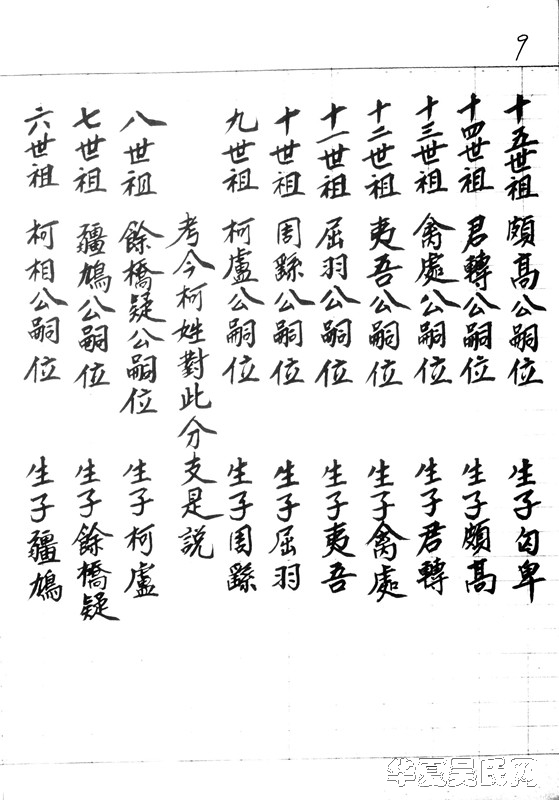 9
六世祖 柯相公嗣位 生子疆鳩
七世祖 疆鳩公嗣位 生子餘橋疑
八世祖 餘橋疑公嗣位 生子柯盧
考今柯姓對此分支是説
九世祖 柯盧公嗣位 生子周繇
十世祖 周繇公嗣位 生子屈羽
十一世祖 屈羽公嗣位 生子夷吾
十二世祖 夷吾公嗣位 生子禽處
十三世祖 禽處公嗣位 生子君轉
十四世祖 君轉公嗣位 生子頗高
十五世祖 頗高公嗣位 生子句卑
华夏吴氏网